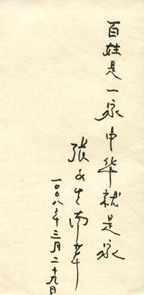 百姓是一家中华就是家
张文生南岸
二〇〇八年三月二十九日